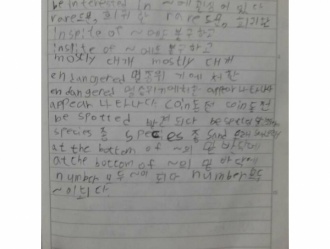 be interested in ~에 관심이 있다
rare 드문, 희귀한 rare 드문, 희귀한
inspite of ~에도 불구하고
inspite of ~에도 불구하고
mostly 대개 mostly 대개
endangered 멸종위기에 처한
endangered 멸종위기에 처한 appear 나타나다
appear 나타나다 coin 동전 coin 동전
be spotted 발견되다 be spotted
species 종 species 종 sand
at the bottom of ~의 밑바닥에
at the bottom of ~의 밑바닥에
number 모두 ~이 되다 number 모두
~이 되다.